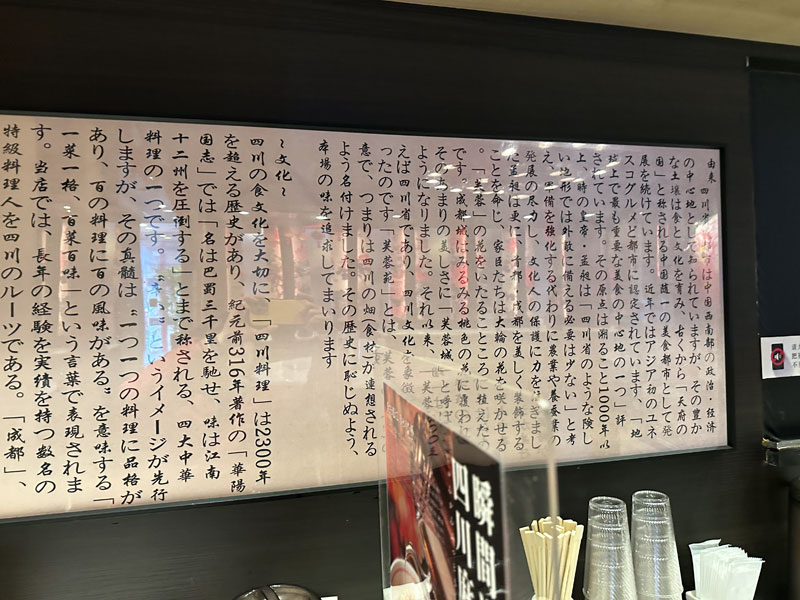 由来 四川省
の中心地として知られていますが、その豊か
な土壌は食と文化を育み、古くから「天府の
国」と称される中国随一の美食都市として発
展を続けています。近年ではアジア初のユネ
スコグルメど都市に認定されています。「地
球上で最も重要な美食の中心地の一つ」評
されています。その原点は溯ること1000年以
上、時の皇帝・孟昶は「四川省のような険し
い地形では外敵に備える必要は少ない」と考
え、軍備を強化する代わりに農業や養蚕業の
発展の尽力し、文化人の保護に力を
た孟昶は更に、首都・成都を美しく装飾する
ことを命じ、家臣たちは大輪の花を咲かせる
「芙蓉」の花をいたるところに植えた
です。成都城はみるみる桃色の花に
そのあまりの美しさに「芙蓉城」と呼
ようになりました。それ以来、「芙蓉
えば四川省であり、四川文化を象徴
ったのです「芙蓉苑」とは、「芙蓉
意で、つまりは四川の畑(食材)が連想される
よう名付けました。その歴史に恥じぬよう、
本場の味を追求してまいります
~文化~
四川の食文化を大切に、「四川料理」は2300年
を超える歴史があり、紀元前316年著作の「華陽
国志」では「名は巴蜀三千里を馳せ、味は江南
十二州を圧倒する」とまで称される、四大中華
料理の一つです。 というイメージが先行
しますが、その真髄は“一つ一つの料理に品格が
あり、百の料理に百の風味がある”を意味する「
一菜一格、百菜百味」という言葉で表現されま
す。当店では、長年の経験を実績を持つ数名の
特級料理人を四川のルーツである。「成都」、
瞬間
四川